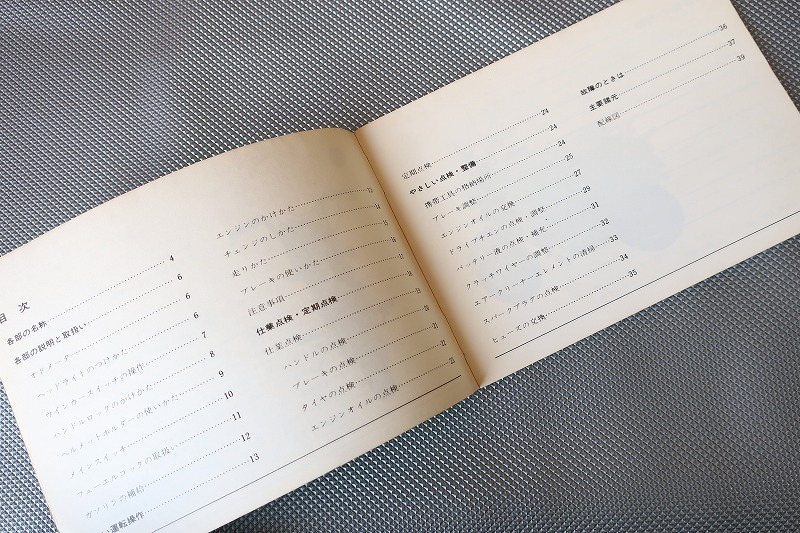 目次
各部の名称 4
各部の説明と取扱い 6
オドメータ 6
ヘッドライトのつけかた 6
ウインカースイッチの操作 7
ハンドルロックのかけかた 8
ヘルメットホルダーの使いかた 9
メインスイッチ 10
フューエルコックの取扱い 11
ガソリンの補給 12
い運転操作 13
エンジンのかけかた 13
チェンジのしかた 14
走りかた 15
ブレーキの使いかた 16
注意事項
仕業点検・定期点検
仕業点検
ハンドルの点検
ブレーキの点検
タイヤの点検
エンジンオイルの点検
定期点検 24
やさしい点検・整備 24
携帯工具の格納場所 24
ブレーキ調整 25
エンジンオイルの交換 27
ドライブチエンの点検・調整 29
バッテリー液の点検・補充 31
クラッチワイヤーの調整 32
エアークリーナーエレメントの清掃 33
スパークプラグの点検 34
ヒューズの交換 35
故障のときは 36
主要諸元 37
配線図 39